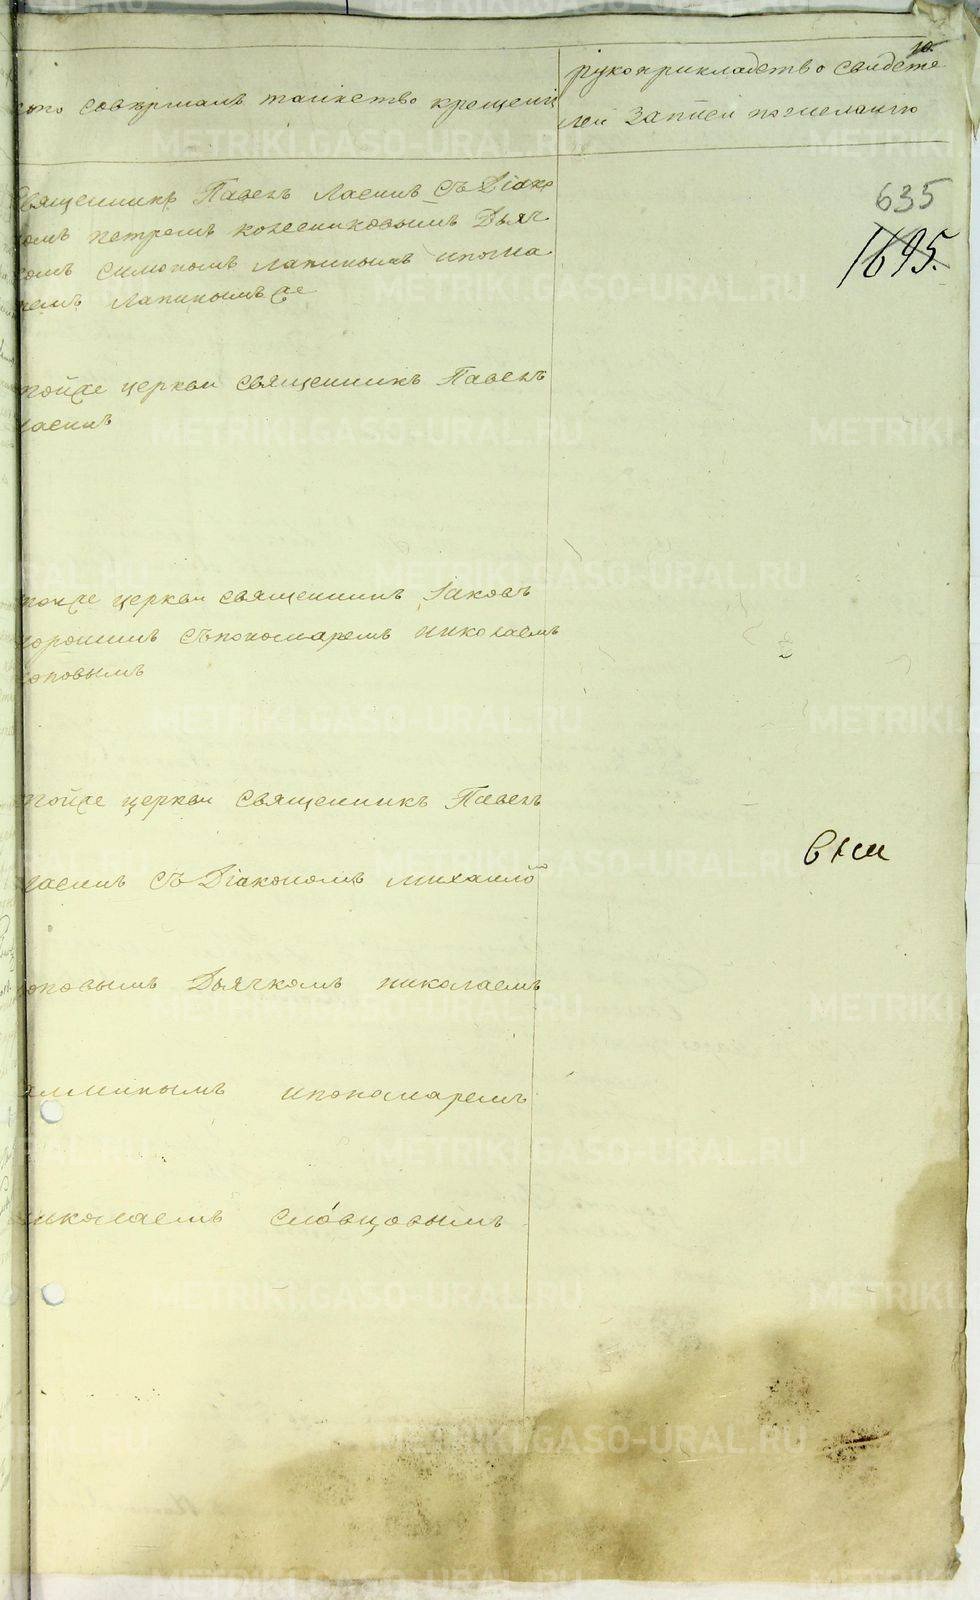 10.
кто совершалъ таинство крещенія
рукоприкладство свидете
лей записи по желанію
Священникъ Павелъ Ласинъ съ Діако
номъ петромъ колесниковымъ Дьяч
комъ симономъ лапинымъ ипонма
ремъ Лапинымъ
635
1695.
тойже церкви священникъ Павелъ
ласинъ
тойже церкви священникъ Іаковъ
съ пономаремъ николаемъ
поповымъ
тойже церкви священникъ Павелъ
ласинъ съ Діакономъ михаило
поповымъ Дьячкомъ николаемъ
ипономаремъ
николаемъ словцовымъ
METRIKI.GASO-URAL.RU